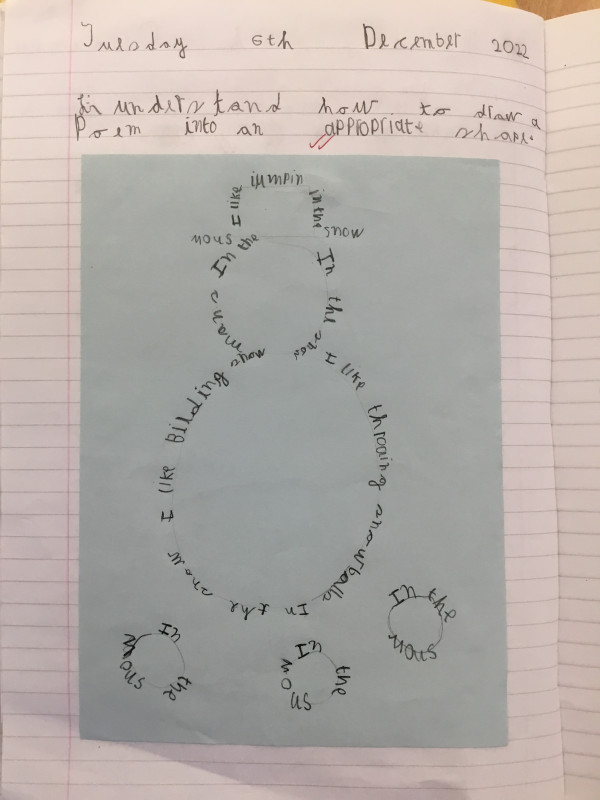 Tuesday 6th December 2022
Li understand how to draw a
Poem into an appropriate shape.
I like jumpin in the snow
In the snow
I like throaing snowballs
In the snow
I like Bilding snow mans
In the snow
In the snow
In the snow
In the snow